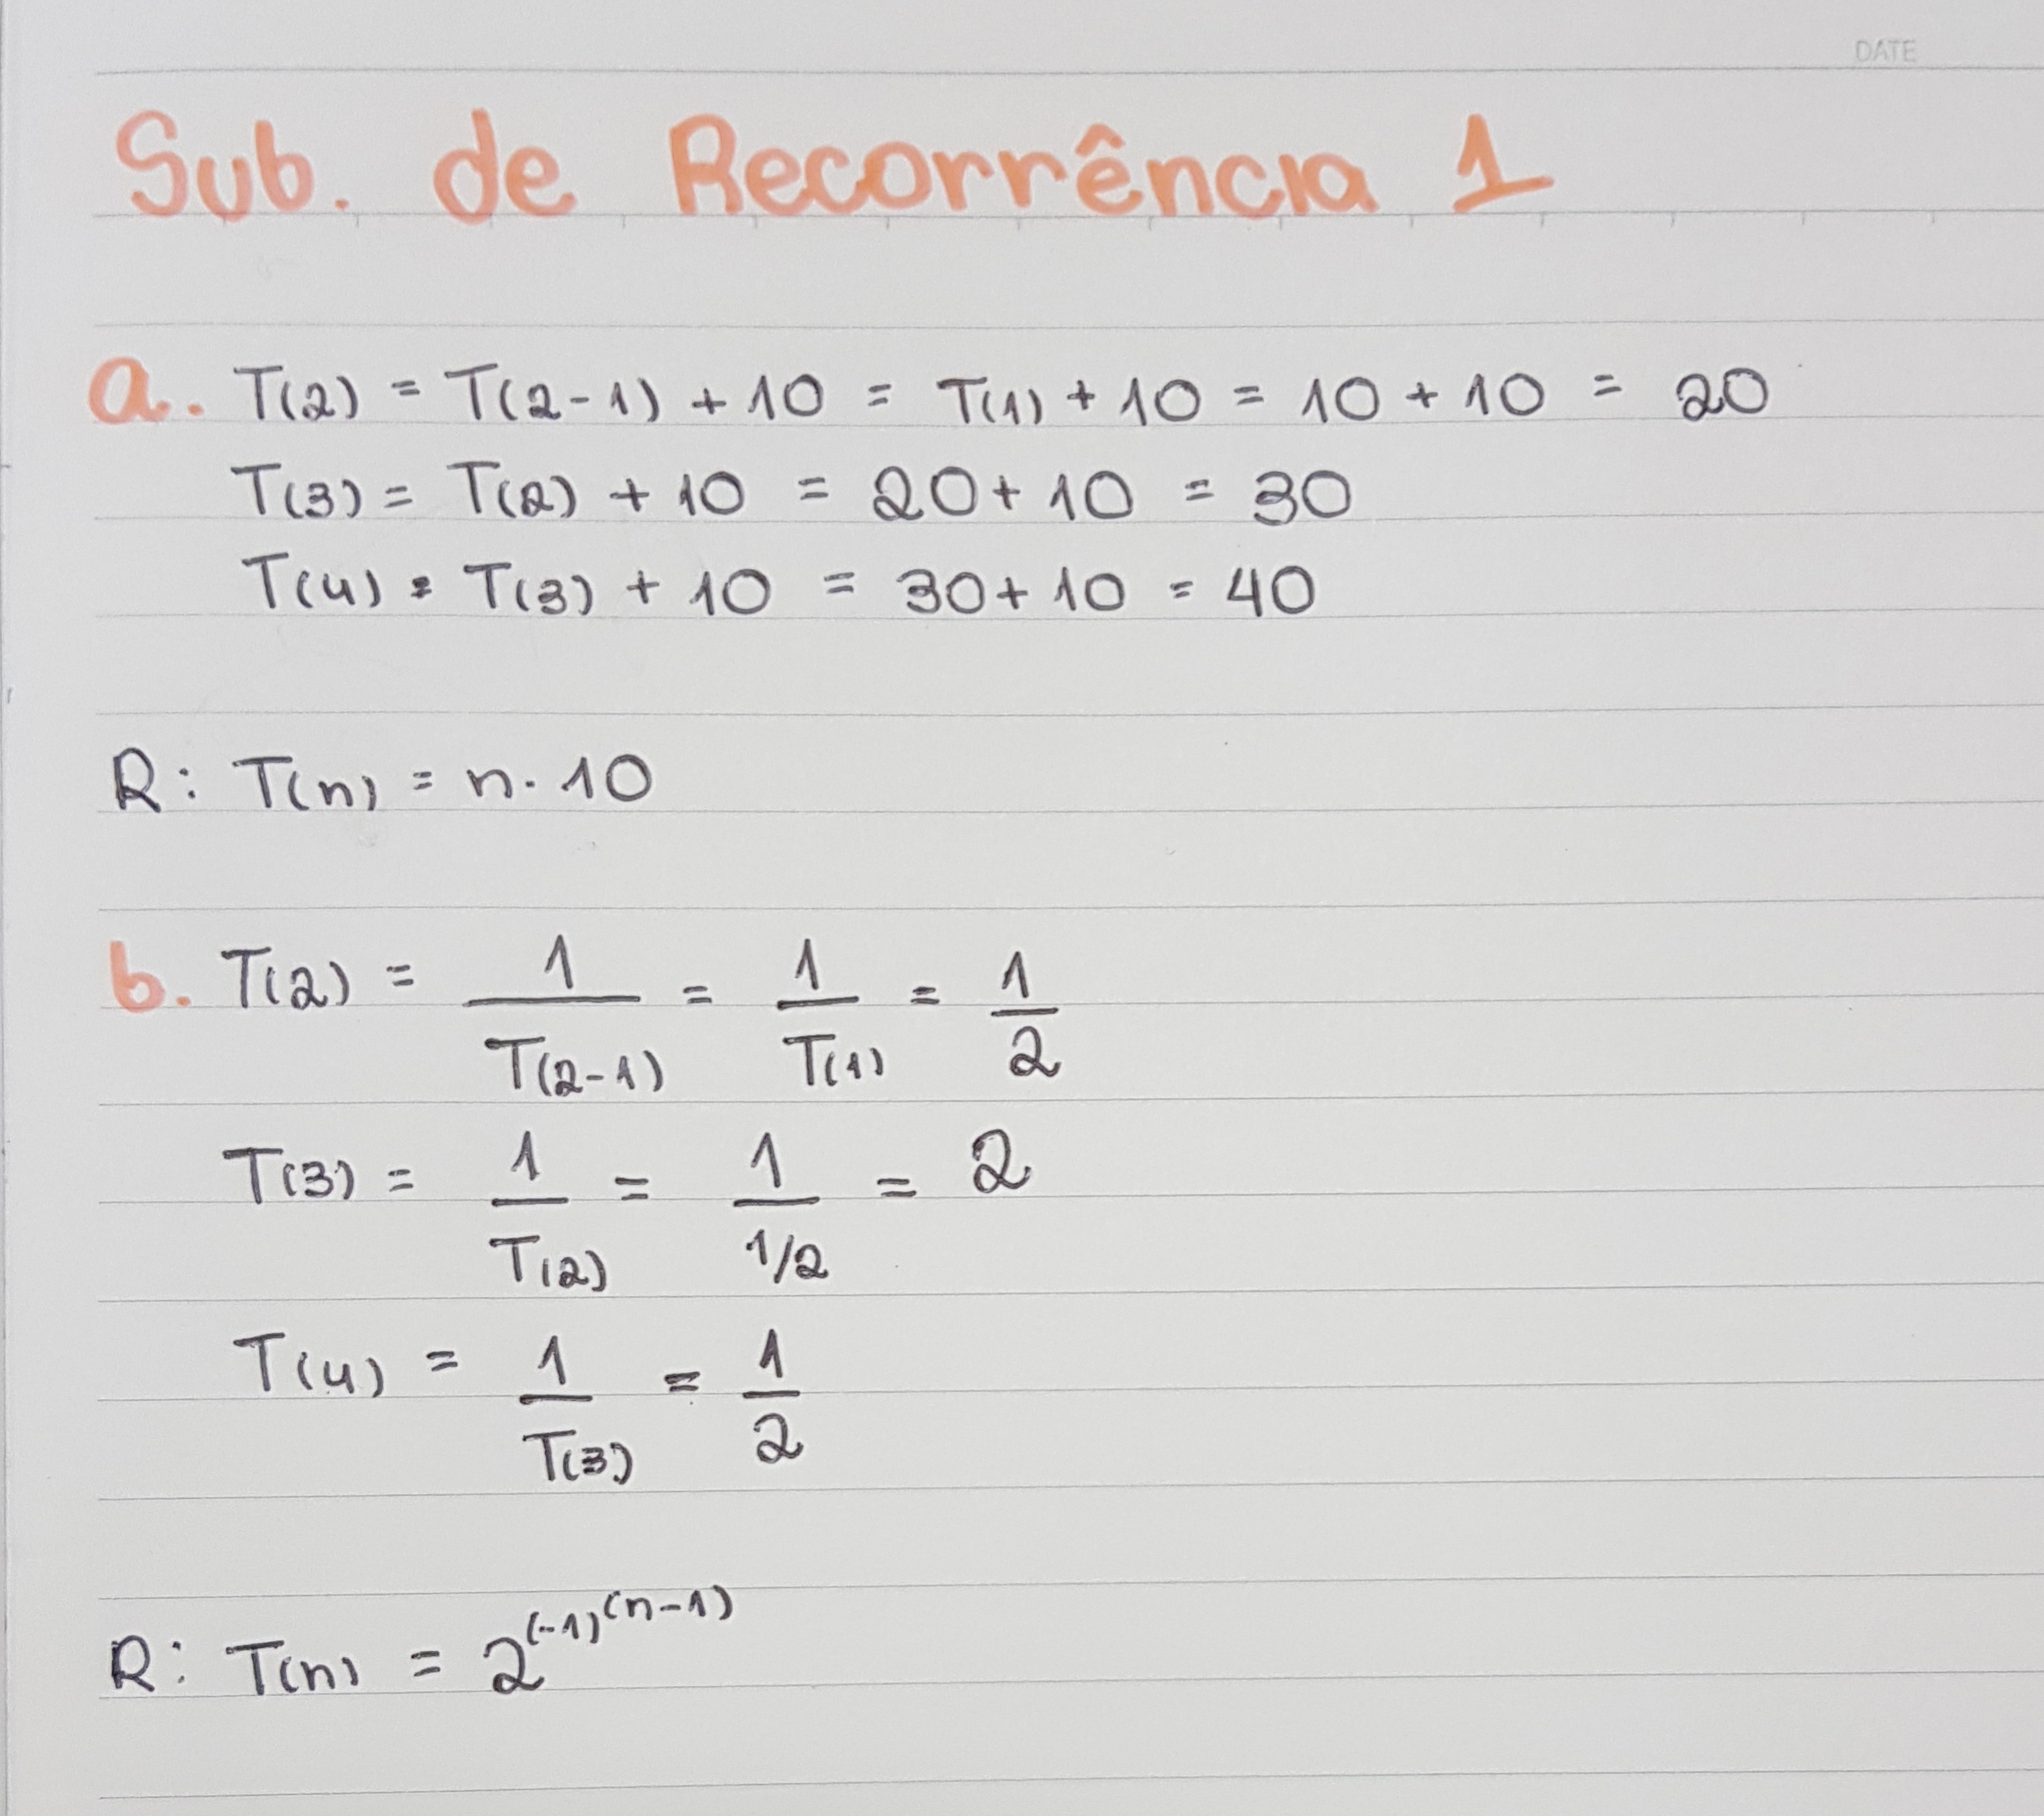 DATE
Sub. de Recorrência 1
a. T(2) = T(2-1) + 10 = T(1) + 10 = 10 + 10 = 20
T(3) = T(2) + 10 = 20 + 10 = 30
T(4) = T(3) + 10 = 30 + 10 = 40
R: T(n) = n. 10
b. T(2) = 1/T(2-1) = 1/T(1) = 1/2
T(3) = 1/T(2) = 1/(1/2) = 2
T(4) = 1/T(3) = 1/2
R: T(n) = 2^(-1)^(n-1)